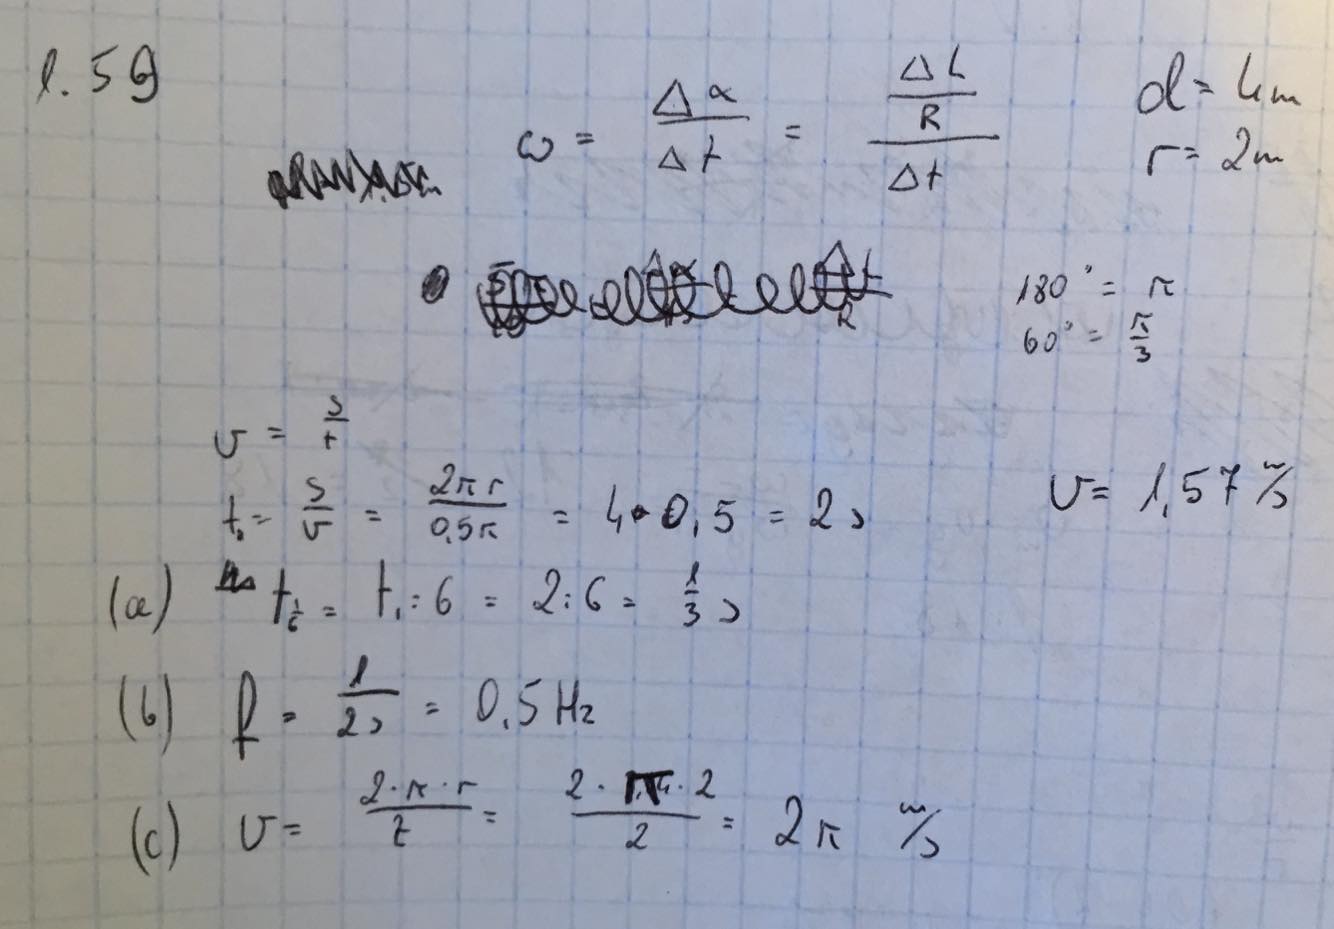 1.59
ω = Δα/Δt = (ΔL/R)/Δt
d = 4m
r = 2m
180° = π
60° = π/3
v = s/t
t₁ = s/v = 2πr/0,5π = 4·0,5 = 2s
v = 1,57 m/s
(a) t₁/₆ = t₁:6 = 2:6 = 1/3 s
(b) f = 1/2s = 0,5 Hz
(c) v = 2·π·r/t = 2·π·2/2 = 2π m/s